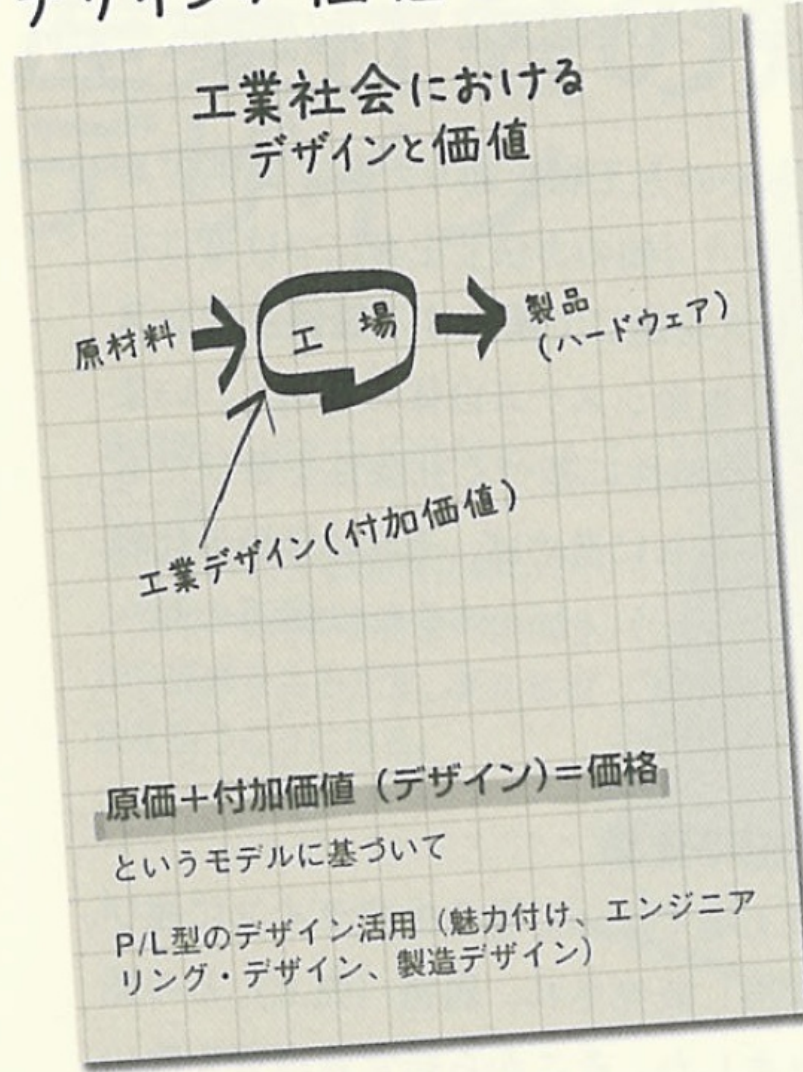 工業社会における
デザインと価値
原材料
工 場
製品
(ハードウェア)
工業デザイン(付加価値)
原価+付加価値(デザイン)=価格
というモデルに基づいて
P/L型のデザイン活用(魅力付け、エンジニア
リング・デザイン、製造デザイン)